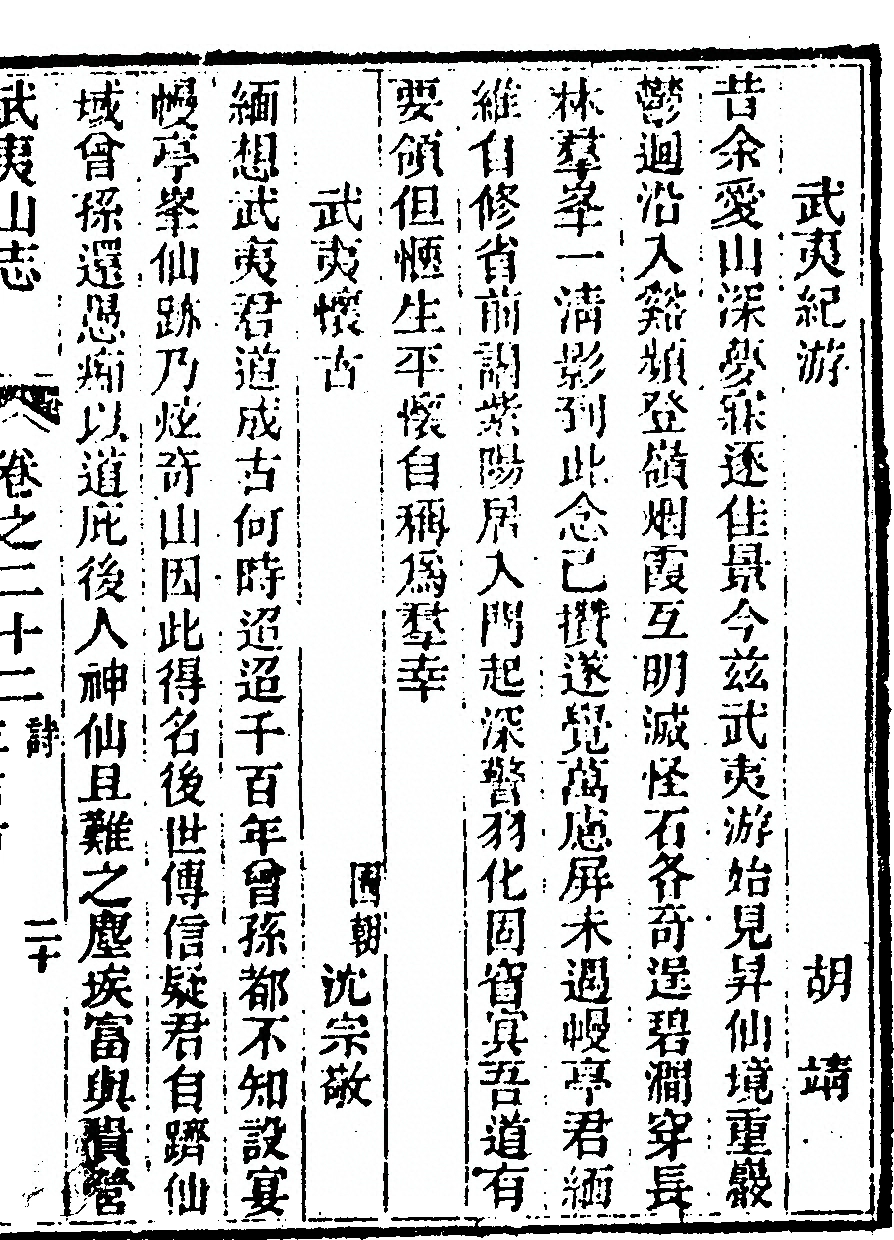 武夷紀游　胡　靖
昔余愛山深夢寐逐佳景今兹武夷游始見昇仙境重巖
鬱迴沿入谿頻登嶺烟霞互明滅怪石各奇逞碧澗穿長
林羣峯一清影到此念已攢遂覺萬慮屏未遇幔亭君緬
維自修省前謁紫陽居入門起深警羽化固窅冥吾道有
要領但恧生平懷自稱爲羣幸
武夷懷古　國朝沈宗敬
緬想武夷君道成古何時迢迢千百年曾孫都不知設宴
幔亭峯仙跡乃炫奇山因此得名後世傳信疑君自躋仙
域曾孫還愚痴以道庇後人神仙且難之塵埃富與積營
武夷山志　卷之二十二　詩　二十